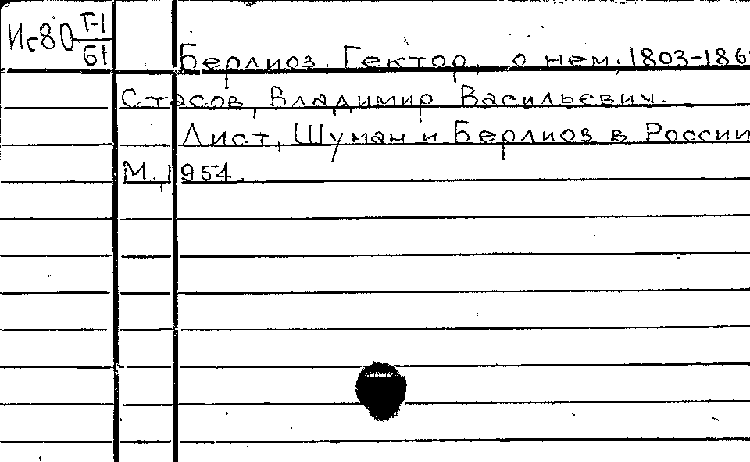 Ис80 Т-1
Б1
Берлиоз. Гектор, о нем, 1803-186
Стасов, Владимир Васильевич.
Лист, Шуман и Берлиоз в России
М., 1954.